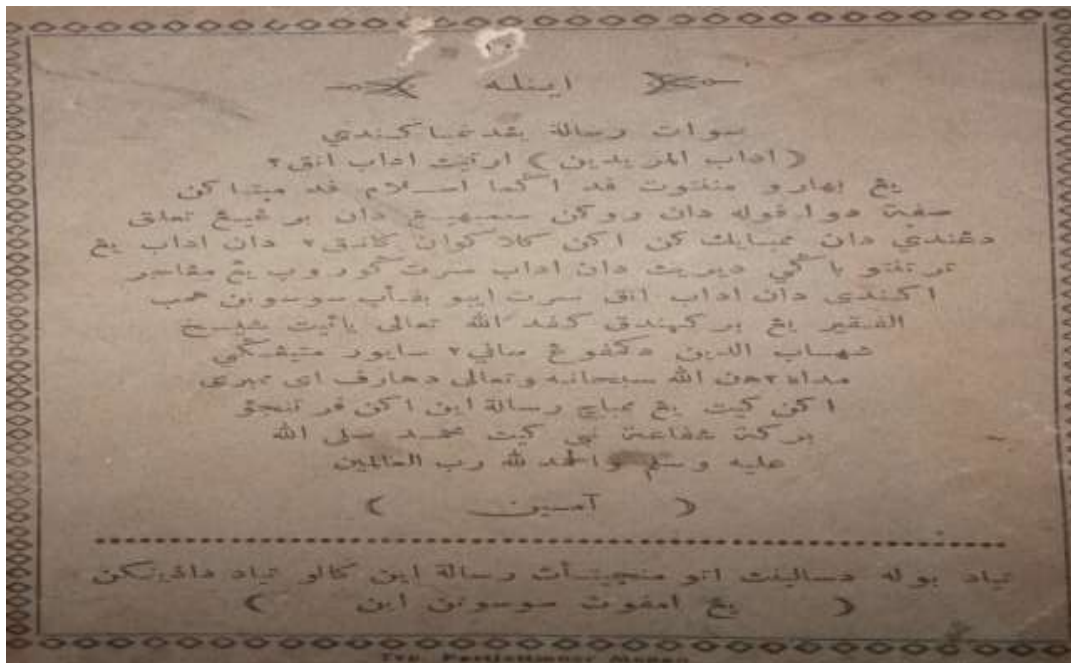 اينله
سوات رسالة يڠدنمباكندي
( اداب المريدين ) ارتيت اداب انق٢
يڠ بهارو منفتوت فد اڬما اسلام فد ميتاكن
صفة دوا فوله دان روكن سمبهيڠ دان برڠيڠ تعلق
دڠندي دان ممبايك كن اكن كلاكوان كانق٢ دان اداب يڠ
ترتنتو باڬي ديريت دان اداب سرت ڬوروب يڠ مڠاجر
اكندى دان اداب انق سرت ايبو بفأب سوسونن همب
الفقير يڠ بركهندق كفد الله تعالى يائيت شيخ
شهاب الدين دكمفوڠ ماني٢ سايور متيڠڬي
مداه٢هن الله سبحانه وتعالى دهارف اى ممبرى
اكن كيت يڠ ممباچ رسالة اين اكن فرتنجق
بركة شفاعة نبي كيت محمد صلى الله
عليه وسلم والحمد لله رب العالمين
( آمـين )
تياد بوله دسالينت اتو منچيتأت رسالة اين كالو تياد داذينكن
( يڠ امفوت سوسونن اين )
Typ.